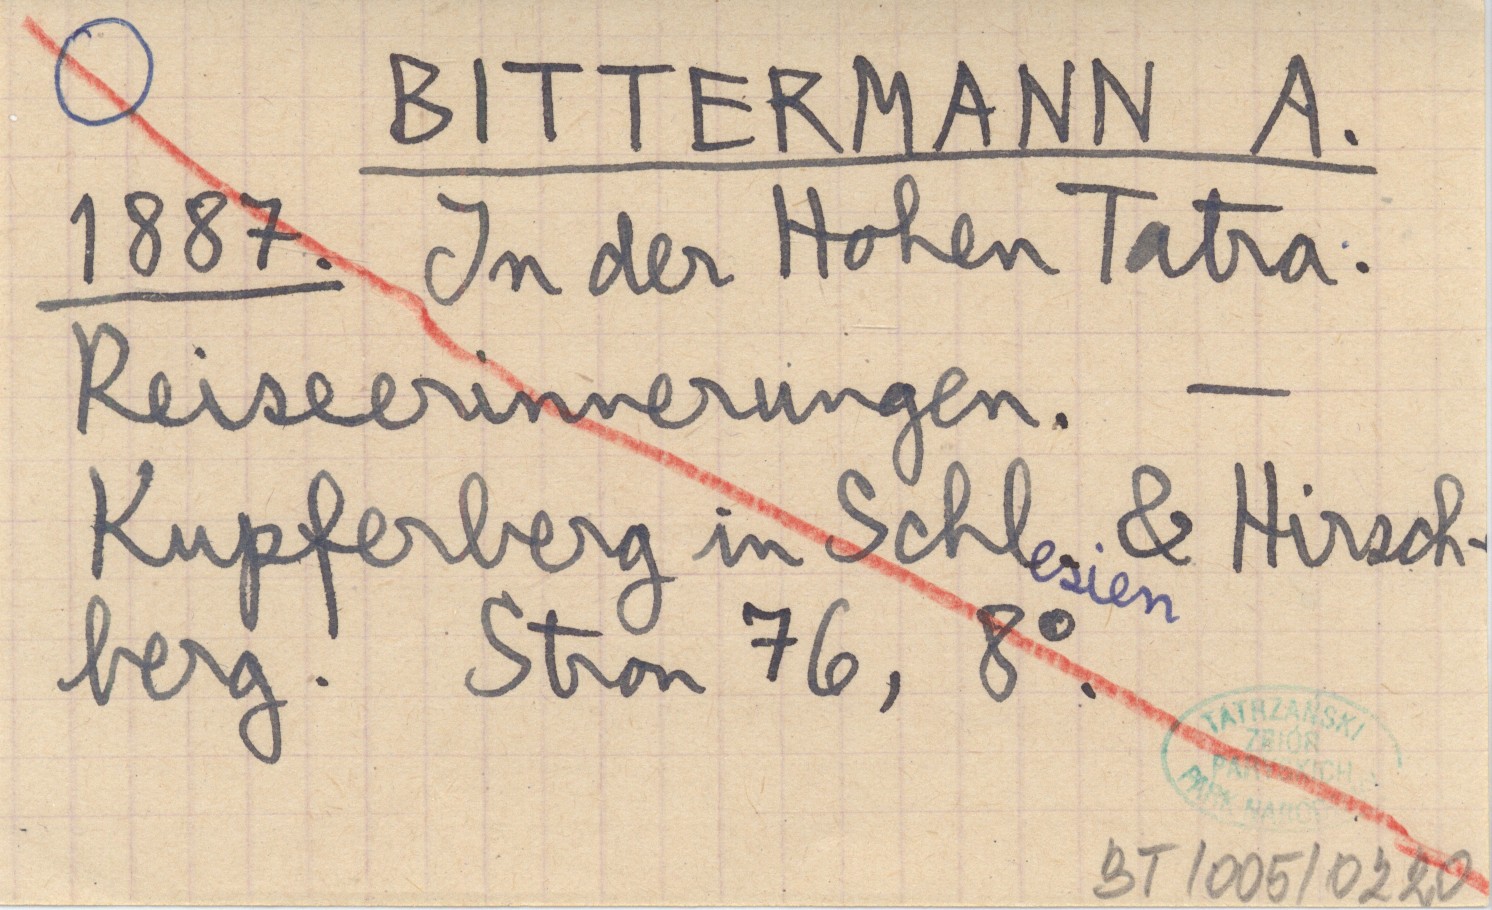 BITTERMANN A.
1887. In der Hohen Tatra:
Reiseerinnerungen. —
Kupferberg in Schlesien & Hirsch-
berg. Stron 76, 8°.
TATRZAŃSKI
ZBIÓR
PARK
BT/005/0220